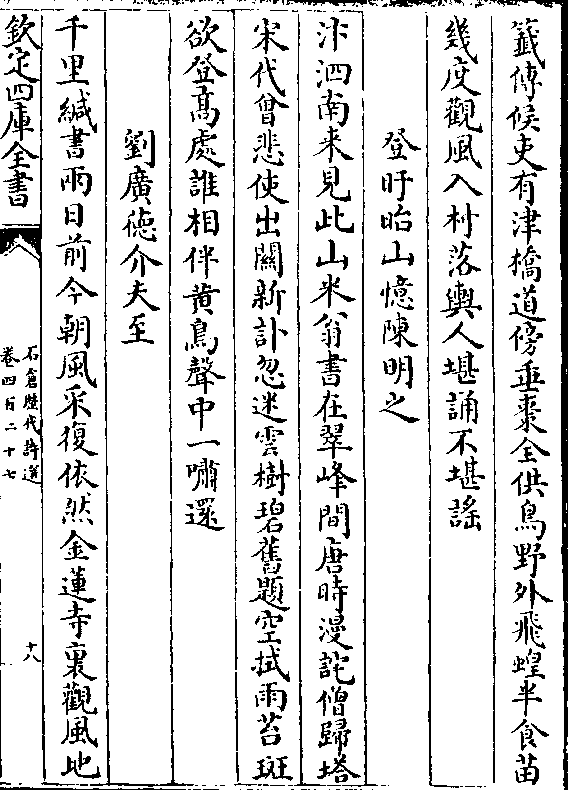 籖傳候吏有津撟道傍垂棗全供鳥野外飛蝗半食苗
幾度觀風入村落輿人堪誦不堪謡
登盱眙山憶陳明之
汴泗南来見此山米翁書在翠峰間唐時漫詫僧歸塔
宋代曾悲使出關新訃忽迷雲樹碧舊題空拭雨苔斑
欲登髙處誰相伴黄鳥聲中一嘯還
劉廣徳介夫至
千里緘書兩日前今朝風采復依然金蓮寺裏觀風地
欽定四庫全書
石倉歴代詩選
卷四百二十七
十八